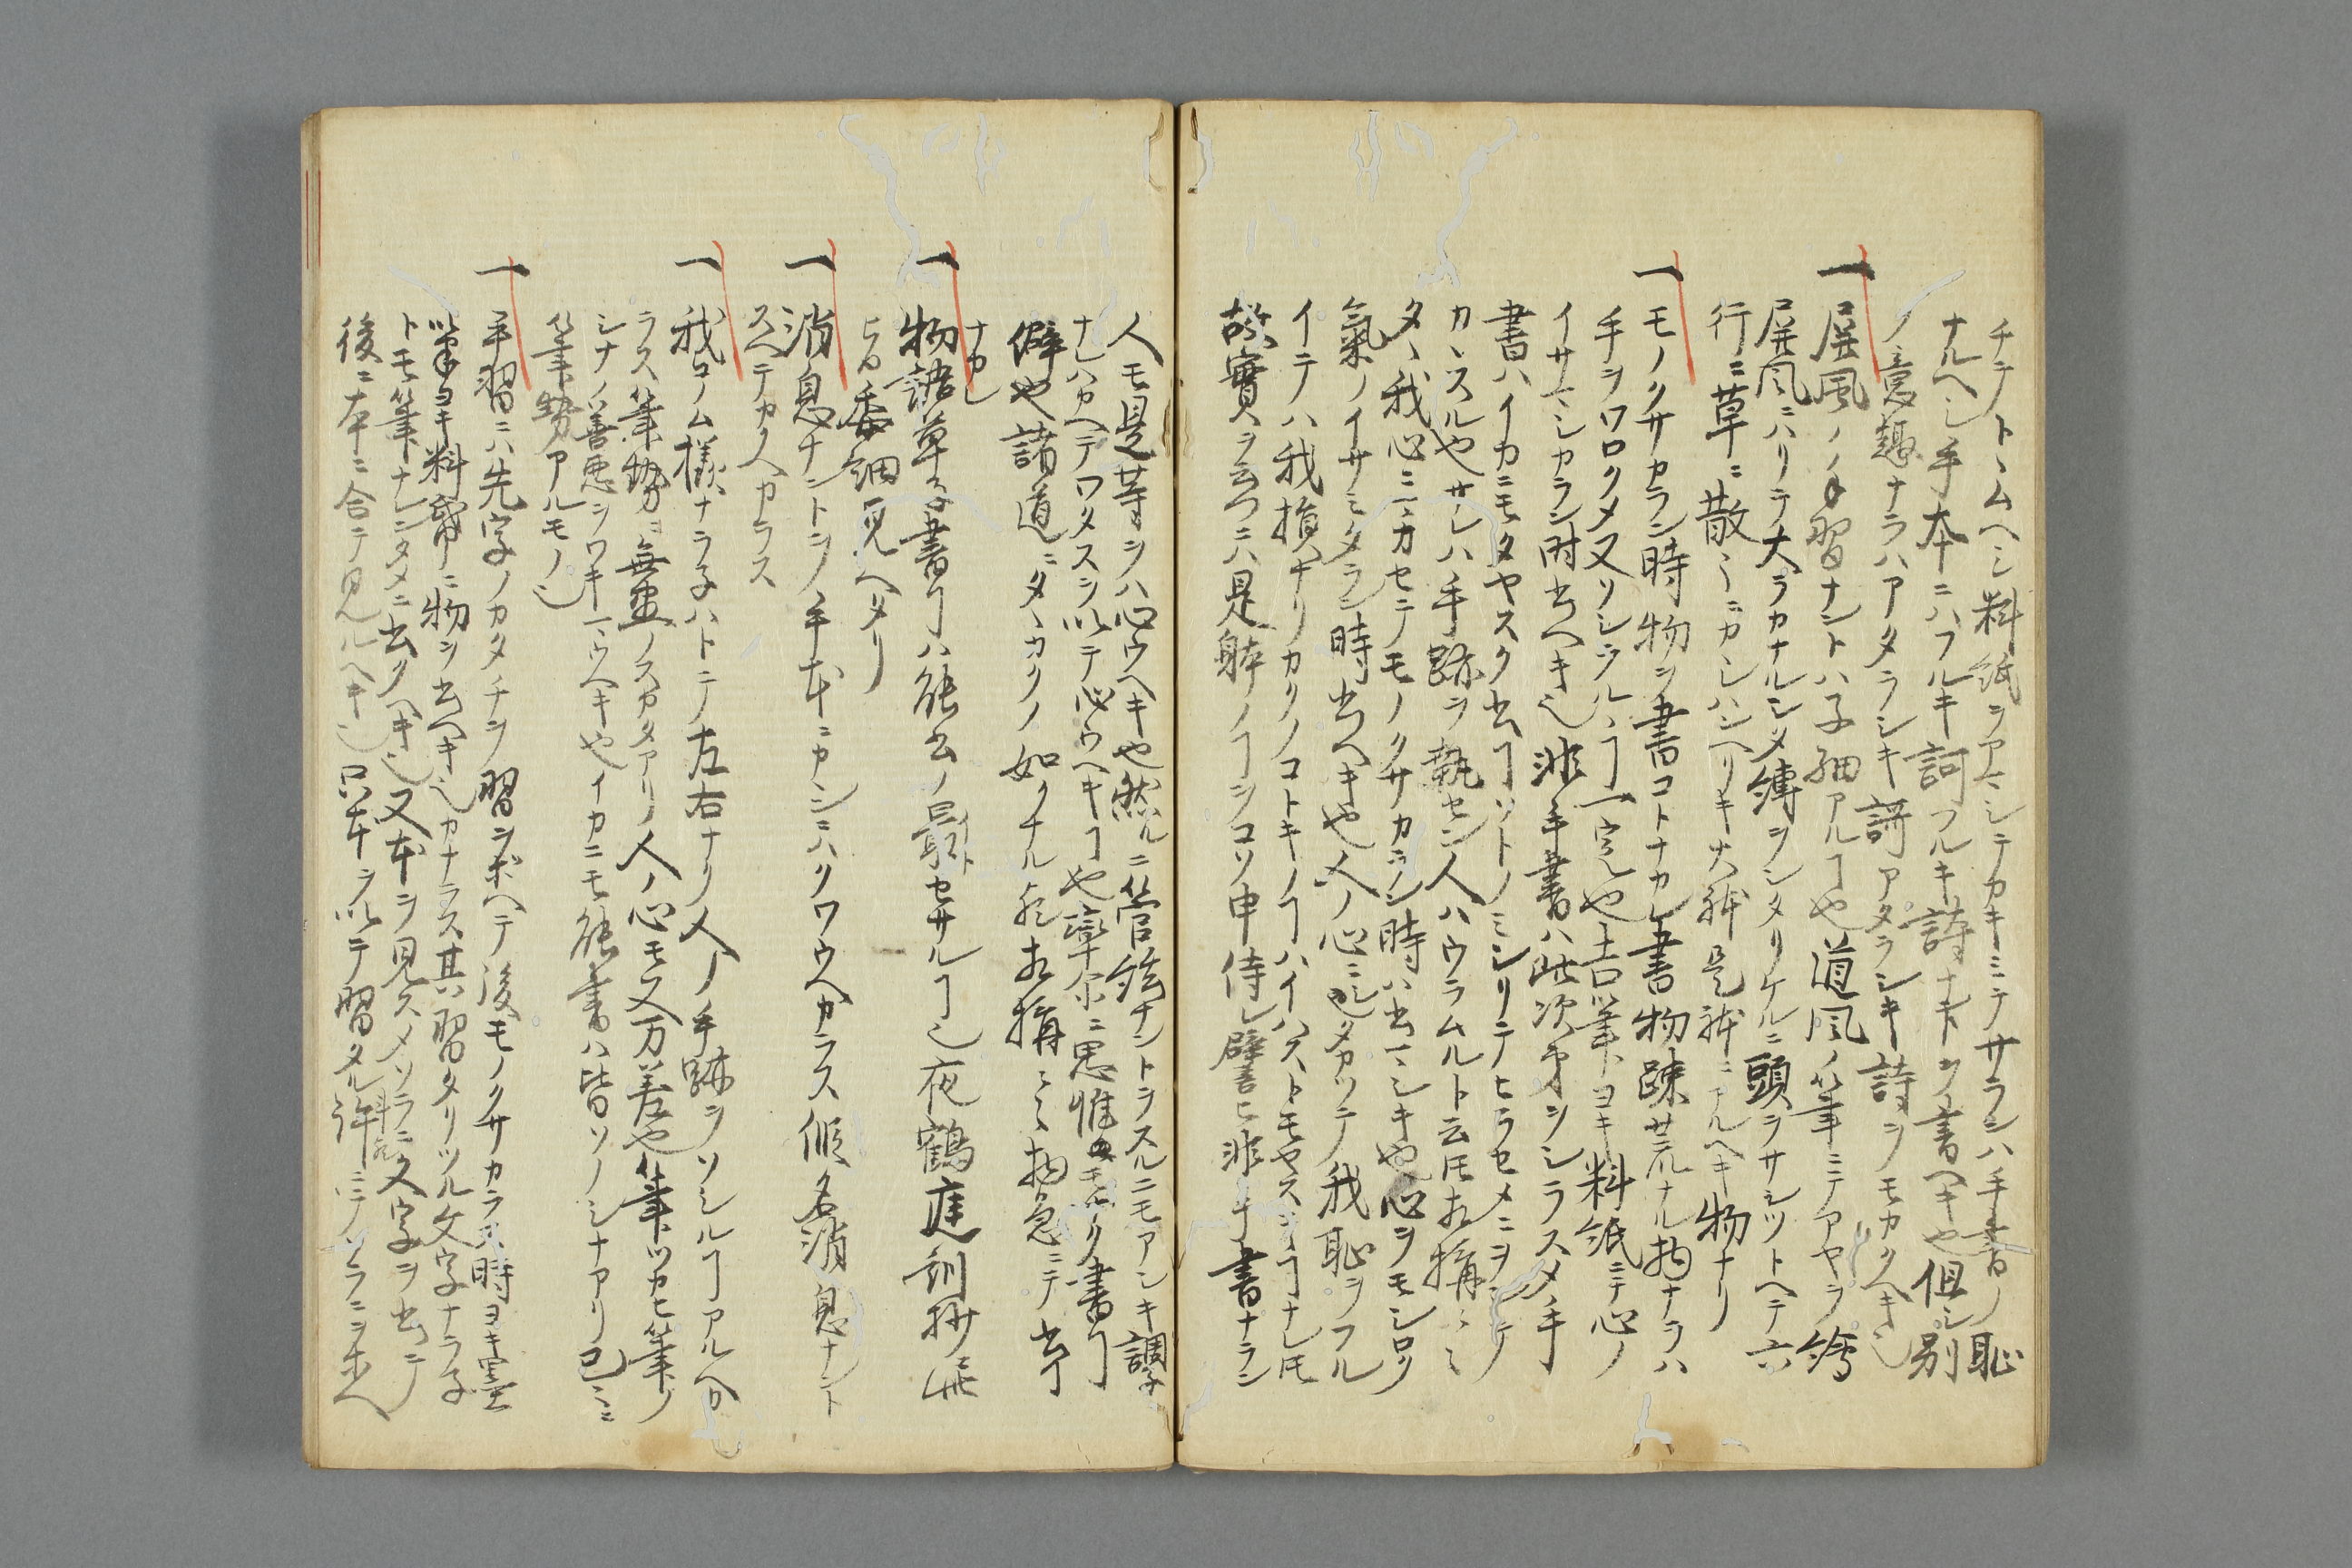 チテトヽムヘシ料紙ヲアマシテカキミテサランハ手書ノ恥
ナルヘシ手本ニハフルキ訶フルキ詩ナトヲ書ヘキ也但シ別
ノ意趣ナラハアタラシキ謌アタラシキ詩ヲモカクヘキ也
一屏風ノ手習ナントハ子細アルヿ也道風ノ筆ニテアヤラ繪
屏風ニハリテ大ラカナルシメ縛ヲシタリケルニ頭ヲサシツトヘテ六
行ニ草ニ散〻ニカシハンヘリキ大躰是躰ニアルヘキ物ナリ
一モノクサカラン時物ヲ書コトナカレ書物疎荒ナル物ナラハ
手ヲワロクメ又ソシラルヽヿ一定也吉筆トヨキ料紙ニテ心ノ
イサマシカラン時书ヘキ也非手書ハ此次第ヲシラスメ手
書ハイカニモタヤスク书ヿソトノミシリテヒラセメニヲシテ
カヽスル也サレハ手跡ヲ執セン人ハウラムルト云𪜈相構〻
タヽ我心ニマカセテモノクサカラン時ハ书マシキ也心ヲモシロク
氣ノイサミタラン時书ヘキ也人ノ心ニタカツテ我恥ヲフル
イテハ我損ナリカクノコトキノヿハイハストモヤスキヿナレ𪜈
故實ヲ云ニハ是躰ノヿヲコソ申侍レ譬ヒ非手書ナラン
人モ是等ヲハ心ウヘキ也然ルニ管絃ナントヲスルニモアシキ調子
ナレハカヘテワタスヲ以テ心ウヘキヿ也率尓ニ思惟モナク書ヿ
僻也諸道ニタヽカクノ如クナルヘシ相構〻〻物忩ニテ书ヿ
ナカレ
一物語草子書ヿハ能书ノ最トセサルヿ也夜鶴庭訓抄ニ此
旨委細見ヘタリ
一消息ナントヲ手本ニカシニハクワウヘカラス假名消息ナント
スヘテカクヘカラス
一我コノム様ナラ子ハトテ左右ナク人ノ手跡ヲソシルヿアルヘカ
ラス筆勢ニ無盡ノスカタアリ人ノ心モ又万差也筆ツカヒ筆ノ
シナノ善悪ヲワキマウヘキ也イカニモ能書ハ皆ソノシナアリ已ニ
筆勢アルモノ也
一手習ニハ先字ノカタチヲ習ヲホヘテ後モノクサカラヌ時ヨキ墨
筆ヨキ料帋ニ物ヲ书ヘキ也カナラス其習タリツル文字ナラ子
トモ筆ナレンタメニ书クヘキ也又本ヲ見スメソラニ文字ヲ书テ
後ニ本ニ合テ見ルヘキ也只本ヲ以テ習タル許ニテソラニヲホヘ